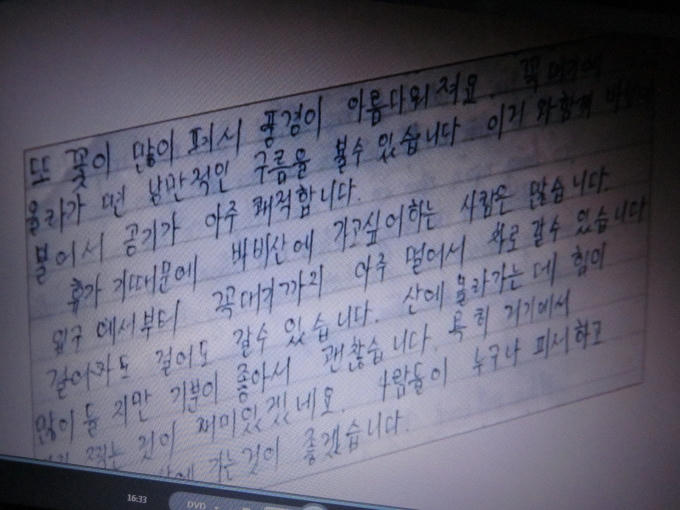 또 꽃이 많이 피서 풍경이 아름다워져요. 꼭
올라가 면 낭만적인 구름을 볼수 있습니다. 이기 와함께
불어서 공기가 아주 쾌적합니다.
휴가 기때문에 바비산에 가고싶어하는 사람은 많습니다.
입구 에서부터 꼭대기까지 아주 멀어서 차로 갈수 있습니다
걸어가도 걸어도 갈수 있습니다. 산에 올라가는 데 힘이
많이 들 지만 기분이 좋아서 괜찮습니다. 특히 거기에서
찍는 것이 재미있겠네요. 사람들이 누구나 피서하고
가는것이 좋겠습니다.
16:33
DVD